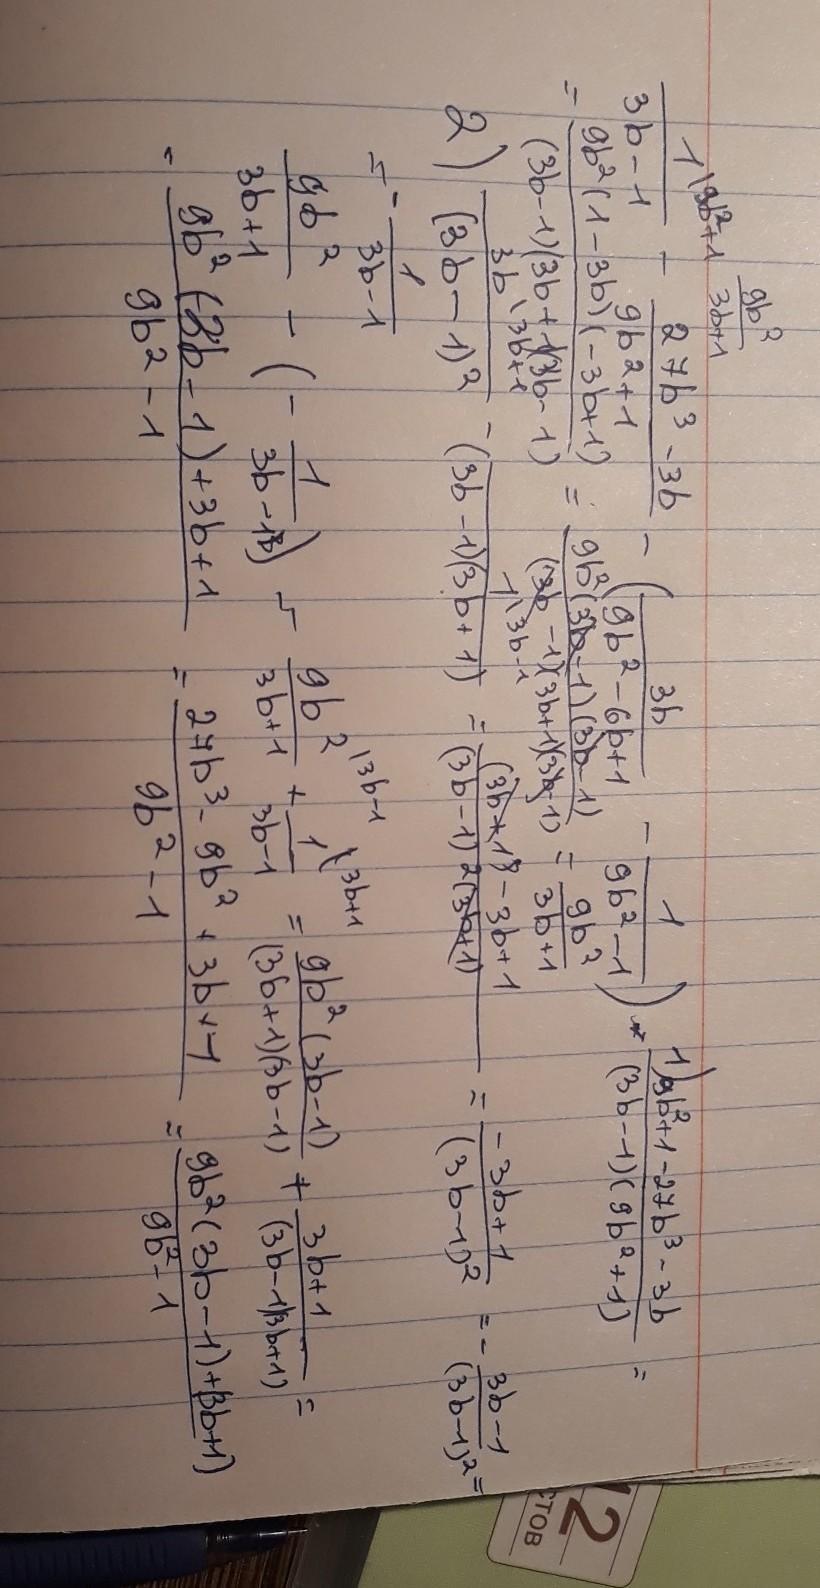 9b² / (3b+1)
1\9b²+1 / (3b-1) - (27b³-3b) / (9b²+1) - (3b / (9b²-6b+1) - 1 / (9b²-1)) * 1) (9b²+1-27b³-3b) / ((3b-1)(9b²+1)) =
= 9b²(1-3b)(-3b+1) / ((3b-1)(3b+1)(3b-1)) = 9b²(3b-1)(3b-1) / ((3b-1)(3b+1)(3b-1)) = 9b² / (3b+1)
2) 3b\3b+1 / (3b-1)² - 1\3b-1 / ((3b-1)(3b+1)) = ((3b+1) - 3b+1) / ((3b-1)²(3b+1)) = (-3b+1) / (3b-1)² = - (3b-1) / (3b-1)² =
= - 1 / (3b-1)
9b² / (3b+1) - (- 1 / (3b-1)) - 9b² \3b-1 / (3b+1) + 1 \3b+1 / (3b-1) = 9b²(3b-1) / ((3b+1)(3b-1)) + (3b+1) / ((3b-1)(3b+1)) =
= (9b²(3b-1)+3b+1) / (9b²-1) = (27b³-9b²+3b+1) / (9b²-1) = (9b²(3b-1)+(3b+1)) / (9b²-1)
12
СТОВ